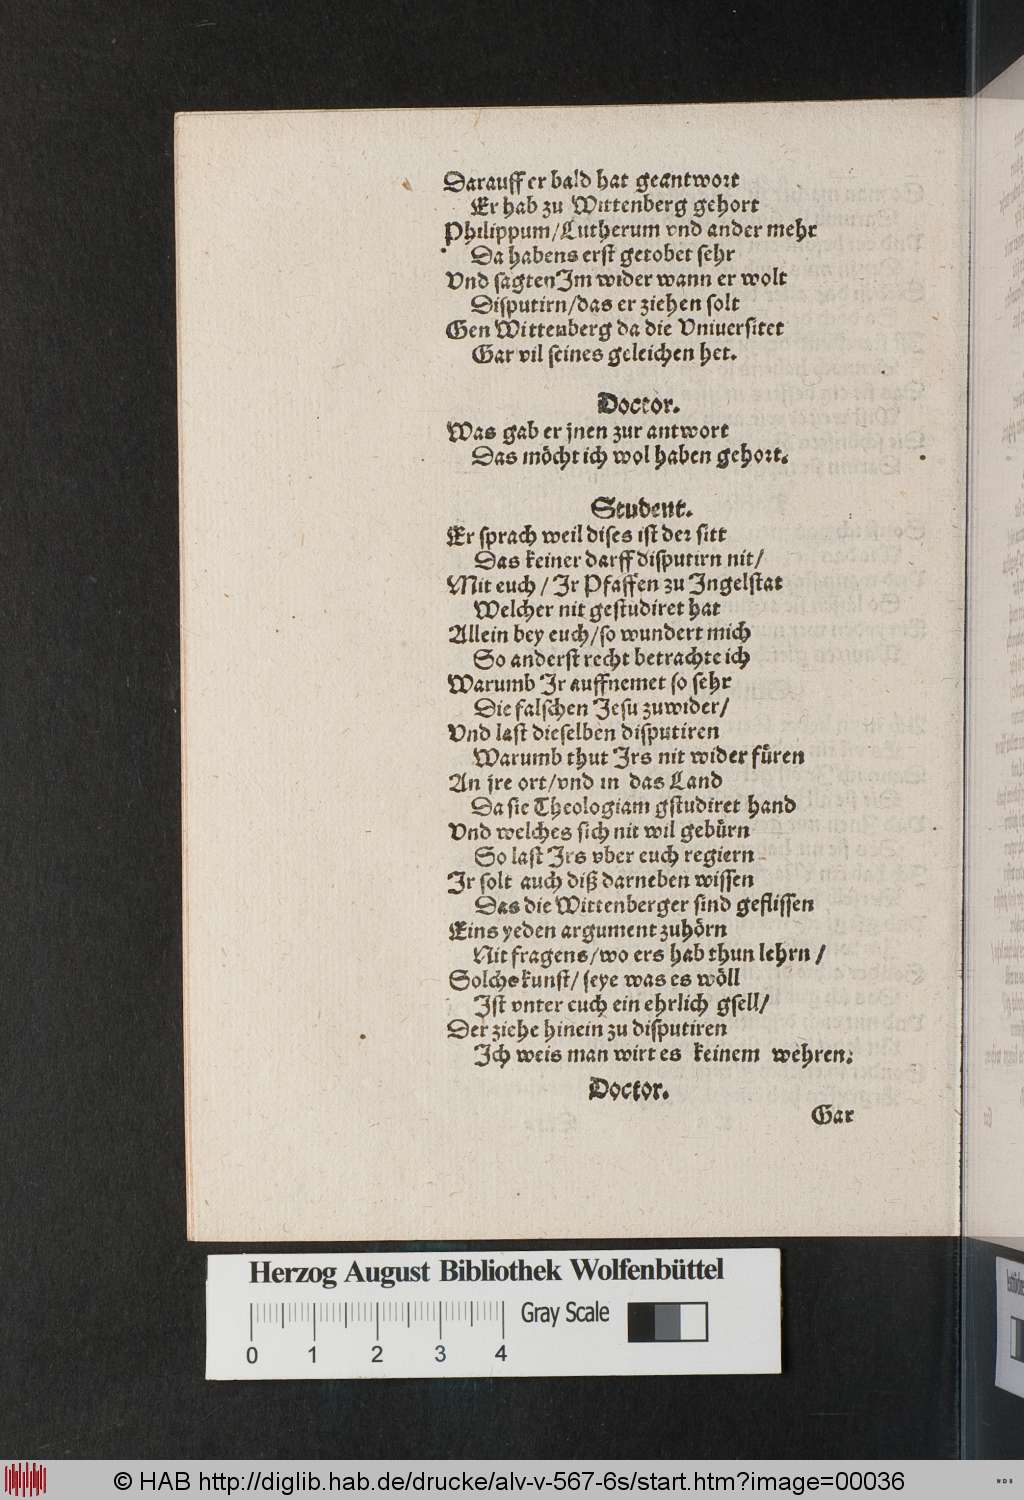 Darauff er bald hat geantwort
Er hab zu Wittenberg gehort
Philippum/Lutherum vnd ander mehr
Da habens erst getobet sehr
Vnd sagten Jm wider wann er wolt
Disputirn/das er ziehen solt
Gen Wittenberg da die Vniuersitet
Gar vil seines geleichen het.
Doctor.
Was gab er jnen zur antwort
Das möcht ich wol haben gehort.
Student.
Er sprach weil dises ist der sitt
Das keiner darff disputirn nit/
Mit euch / Jr Pfaffen zu Jngelstat
Welcher nit gestudiret hat
Allein bey euch/so wundert mich
So anderst recht betrachte ich
Warumb Jr auffnemet so sehr
Die falschen Jesu zuwider/
Vnd last dieselben disputiren
Warumb thut Jrs nit wider füren
An jre ort/vnd in das Land
Da sie Theologiam gstudiret hand
Vnd welches sich nit wil gebürn
So last Jrs vber euch regiern
Jr solt auch diß darneben wissen
Das die Wittenberger sind geflissen
Eins yeden argument zuhörn
Nit fragens/wo ers hab thun lehrn /
Solche kunst/ seye was es wöll
Jst vnter euch ein ehrlich gsell/
Der ziehe hinein zu disputiren
Jch weis man wirt es keinem wehren.
Doctor.
Gar
Herzog August Bibliothek Wolfenbüttel
Gray Scale
0 1 2 3 4
© HAB http://diglib.hab.de/drucke/alv-v-567-6s/start.htm?image=00036